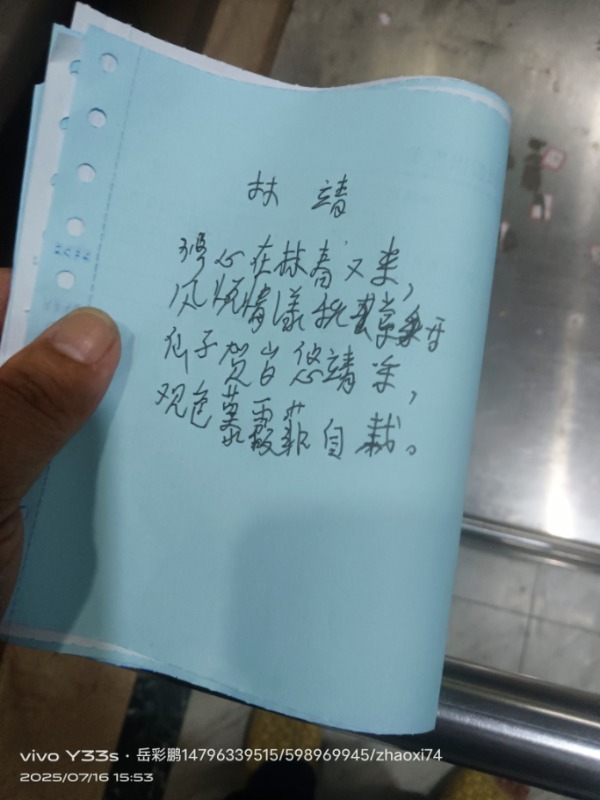 林 靖
心在林春又来,
风悦情漾桃
仙子贺岁悠靖采,
观色慕霞菲自栽。
vivo Y33s·岳彩鹏14796339515/598969945/zhaoxi74
2025/07/16 15:53